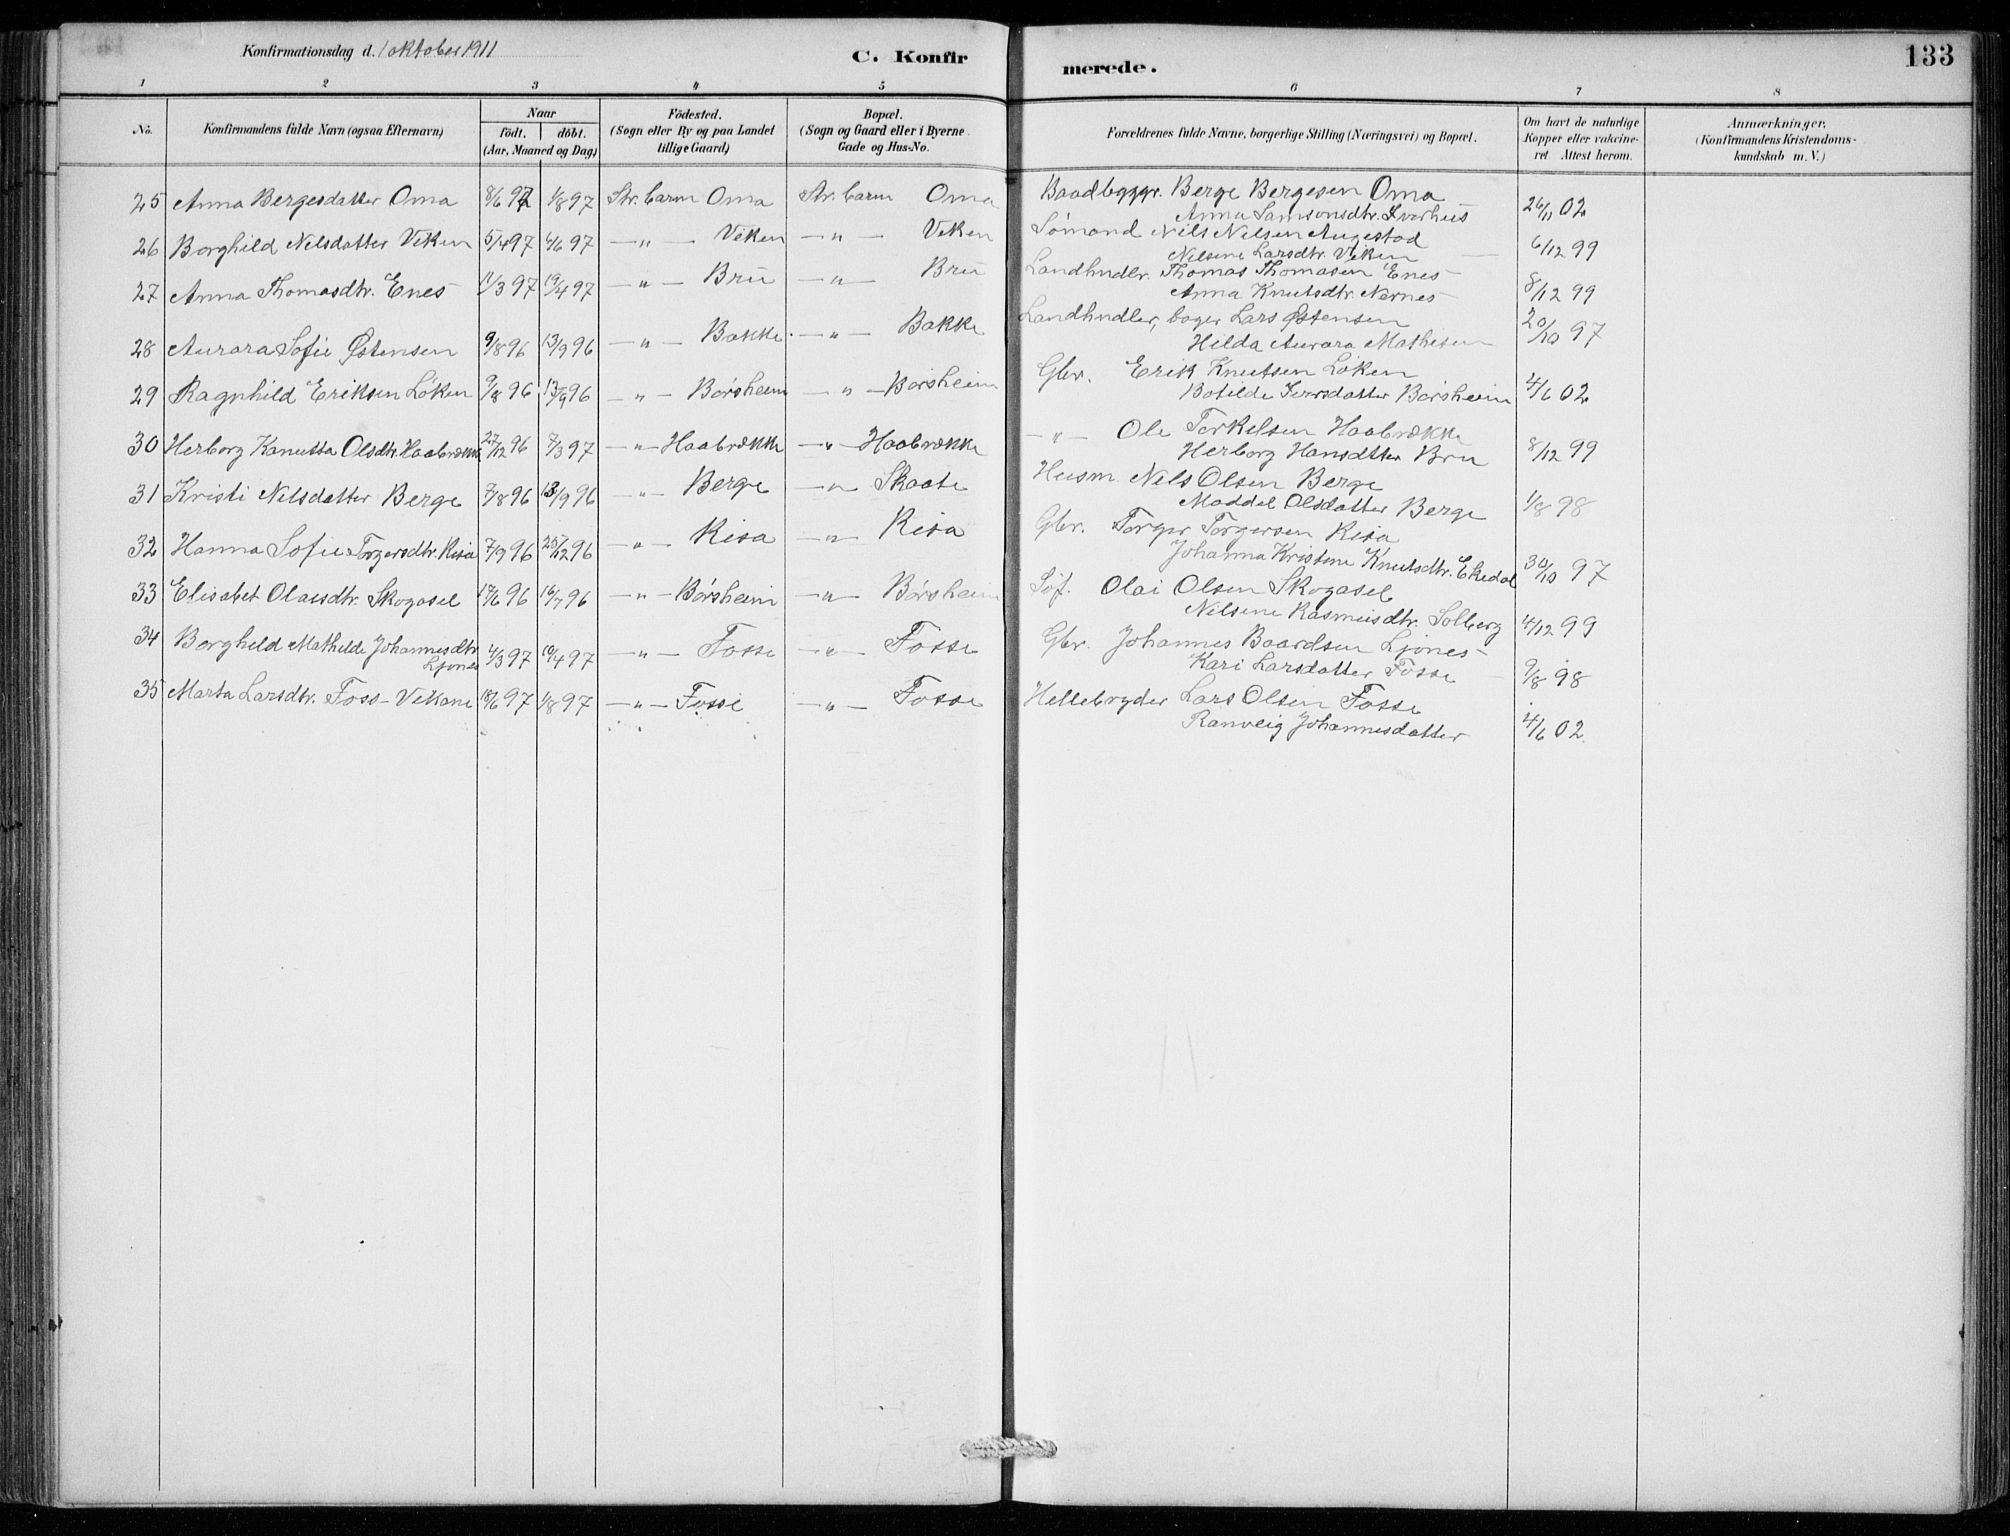 Konfirmationsdag d. 1 oktober 1911
C. Konfirmerede.
133
1 2 3 4 5 6 7 8
No.
Konfirmandens fulde Navn (ogsaa Efternavn)
Naar
födt. döbt.
(Aar, Maaned og Dag)
Födested.
(Sogn eller By og paa Landet
tillige Gaard)
Bopæl.
(Sogn og Gaard eller i Byerne
Gade og Hus-No.
Forældrenes fulde Navne, borgerlige Stilling (Næringsvei) og Bopæl.
Om havt de naturlige
Kopper eller vakcine-
ret Attest herom.
Anmærkninger.
(Konfirmandens Kristendoms-
kundskab m. V.)
25 Anna Bergesdatter Oma 8/6 97 1/8 97 Str. barm Oma Str. barm Oma Baadbyggr. Berge Bergesen Oma
Anna Samsonsdtr. Iverhus 26/11 02
26 Borghild Nilsdatter Viken 5/4 97 4/6 97 —„— Viken —„— Viken Sömand Nils Nilsen Augestad
Nilsine Larsdtr. Viken 6/12 99
27 Anna Thomasdtr. Enes 11/3 97 19/4 97 —„— Bru —„— Bru Landhndlr. Thomas Thomasen Enes
Anna Knutsdtr. Nernes 8/12 99
28 Aurora Sofie Østensen 9/8 96 13/9 96 —„— Bakke —„— Bakke Landhndler, bager Lars Østensen
Hilda Aurora Mathisen 20/10 97
29 Ragnhild Eriksen Löken 9/8 96 13/9 96 —„— Börsheim —„— Börsheim Gbr. Erik Knutsen Löken
Botilde Iversdatter Börsheim 4/6 02
30 Herborg Kanutta Olsdtr. Haabrække 27/12 96 7/3 97 —„— Haabrække —„— Haabrække —„— Ole Torkelsen Haabrække
Herborg Hansdatter Bru 8/12 99
31 Kristi Nilsdatter Berge 7/8 96 13/9 96 —„— Berge —„— Skaate Husm. Nils Olsen Berge
Maddel Olsdatter Berge 1/8 98
32 Hanna Sofie Torgersdtr. Risa 7/9 96 25/12 96 —„— Risa —„— Risa Gbr. Torger Torgersen Risa
Johanna Kristine Knutsdtr. Ekedal 30/10 97
33 Elisabet Olaisdtr. Skogasel 17/6 96 16/7 96 —„— Börsheim —„— Börsheim Söf. Olai Olsen Skogasel
Nilsine Rasmusdtr. Solberg 4/12 99
34 Borghild Mathilde Johannesdtr.
Ljones 4/3 97 19/4 97 —„— Fosse —„— Fosse Gbr. Johannes Baardsen Ljones
Kari Larsdatter Fosse 9/8 98
35 Marta Larsdtr. Foss-Vikane 18/6 97 1/8 97 —„— Fosse —„— Fosse Hellebryder Lars Olsen Fosse
Ranveig Johannesdatter 4/6 02